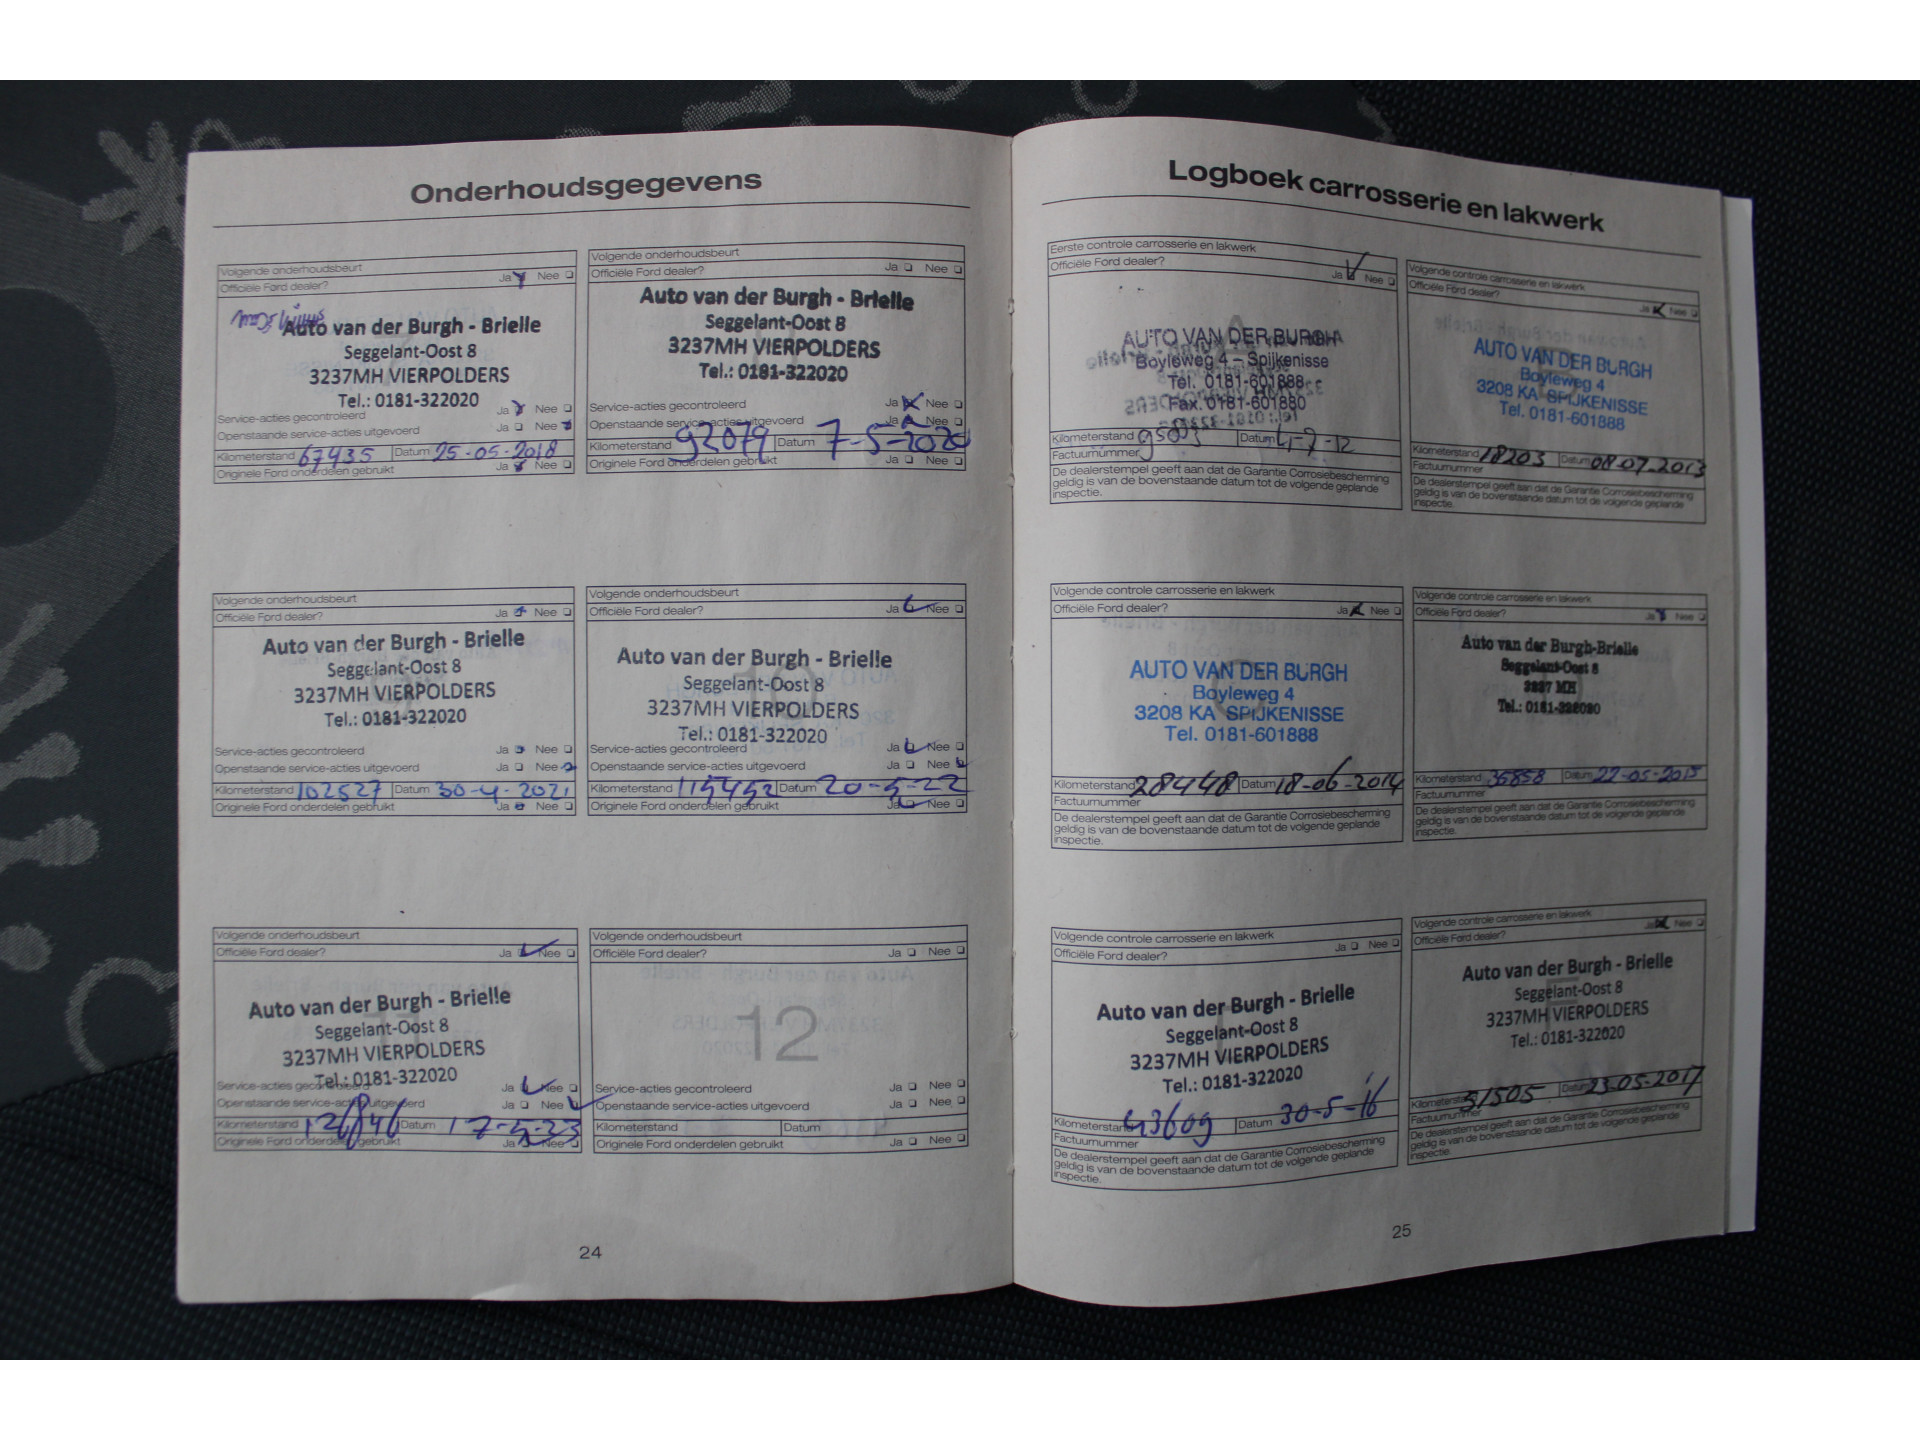 Onderhoudsgegevens
Volgende onderhoudsbeurt
Officiële Ford dealer? Ja Nee
Auto van der Burgh - Brielle
Seggelant-Oost 8
3237MH VIERPOLDERS
Tel.: 0181-322020
Service-acties gecontroleerd Ja Nee
Openstaande service-acties uitgevoerd Ja Nee
Kilometerstand 67435 Datum 25-05-2018
Originele Ford onderdelen gebruikt Ja Nee
Volgende onderhoudsbeurt
Officiële Ford dealer? Ja Nee
Auto van der Burgh - Brielle
Seggelant-Oost 8
3237MH VIERPOLDERS
Tel.: 0181-322020
Service-acties gecontroleerd Ja Nee
Openstaande service-acties uitgevoerd Ja Nee
Kilometerstand 92079 Datum 7-5-2020
Originele Ford onderdelen gebruikt Ja Nee
Volgende onderhoudsbeurt
Officiële Ford dealer? Ja Nee
Auto van der Burgh - Brielle
Seggelant-Oost 8
3237MH VIERPOLDERS
Tel.: 0181-322020
Service-acties gecontroleerd Ja Nee
Openstaande service-acties uitgevoerd Ja Nee
Kilometerstand 102527 Datum 30-4-2021
Originele Ford onderdelen gebruikt Ja Nee
Volgende onderhoudsbeurt
Officiële Ford dealer? Ja Nee
10
Auto van der Burgh - Brielle
Seggelant-Oost 8
3237MH VIERPOLDERS
Tel.: 0181-322020
Service-acties gecontroleerd Ja Nee
Openstaande service-acties uitgevoerd Ja Nee
Kilometerstand 115452 Datum 20-5-22
Originele Ford onderdelen gebruikt Ja Nee
Volgende onderhoudsbeurt
Officiële Ford dealer? Ja Nee
11
Auto van der Burgh - Brielle
Seggelant-Oost 8
3237MH VIERPOLDERS
Tel.: 0181-322020
Service-acties gecontroleerd Ja Nee
Openstaande service-acties uitgevoerd Ja Nee
Kilometerstand 126846 Datum 17-5-23
Originele Ford onderdelen gebruikt Ja Nee
Volgende onderhoudsbeurt
Officiële Ford dealer? Ja Nee
12
Service-acties gecontroleerd Ja Nee
Openstaande service-acties uitgevoerd Ja Nee
Kilometerstand Datum
Originele Ford onderdelen gebruikt Ja Nee
24
Logboek carrosserie en lakwerk
Eerste controle carrosserie en lakwerk
Officiële Ford dealer? Ja Nee
AUTO VAN DER BURGH
Boyleweg 4 – Spijkenisse
Tel. 0181-601888
Fax. 0181-601880
Kilometerstand Datum 4-7-12
Factuurnummer
De dealerstempel geeft aan dat de Garantie Corrosiebescherming
geldig is van de bovenstaande datum tot de volgende geplande
inspectie.
Volgende controle carrosserie en lakwerk
Officiële Ford dealer? Ja Nee
AUTO VAN DER BURGH
Boyleweg 4
3208 KA SPIJKENISSE
Tel. 0181-601888
Kilometerstand 18203 Datum 08-07-2013
Factuurnummer
De dealerstempel geeft aan dat de Garantie Corrosiebescherming
geldig is van de bovenstaande datum tot de volgende geplande
inspectie.
Volgende controle carrosserie en lakwerk
Officiële Ford dealer? Ja Nee
AUTO VAN DER BURGH
Boyleweg 4
3208 KA SPIJKENISSE
Tel. 0181-601888
Kilometerstand 28448 Datum 18-06-2014
Factuurnummer
De dealerstempel geeft aan dat de Garantie Corrosiebescherming
geldig is van de bovenstaande datum tot de volgende geplande
inspectie.
Volgende controle carrosserie en lakwerk
Officiële Ford dealer? Ja Nee
Auto van der Burgh-Brielle
Seggelant-Oost 8
3237 MH
Tel.: 0181-322020
Kilometerstand 36858 Datum 22-05-2015
Factuurnummer
De dealerstempel geeft aan dat de Garantie Corrosiebescherming
geldig is van de bovenstaande datum tot de volgende geplande
inspectie.
Volgende controle carrosserie en lakwerk
Officiële Ford dealer? Ja Nee
Auto van der Burgh - Brielle
Seggelant-Oost 8
3237MH VIERPOLDERS
Tel.: 0181-322020
Kilometerstand 43609 Datum 30-5-16
Factuurnummer
De dealerstempel geeft aan dat de Garantie Corrosiebescherming
geldig is van de bovenstaande datum tot de volgende geplande
inspectie.
Volgende controle carrosserie en lakwerk
Officiële Ford dealer? Ja Nee
Auto van der Burgh - Brielle
Seggelant-Oost 8
3237MH VIERPOLDERS
Tel.: 0181-322020
Kilometerstand 51505 Datum 23-05-2017
Factuurnummer
De dealerstempel geeft aan dat de Garantie Corrosiebescherming
geldig is van de bovenstaande datum tot de volgende geplande
inspectie.
25